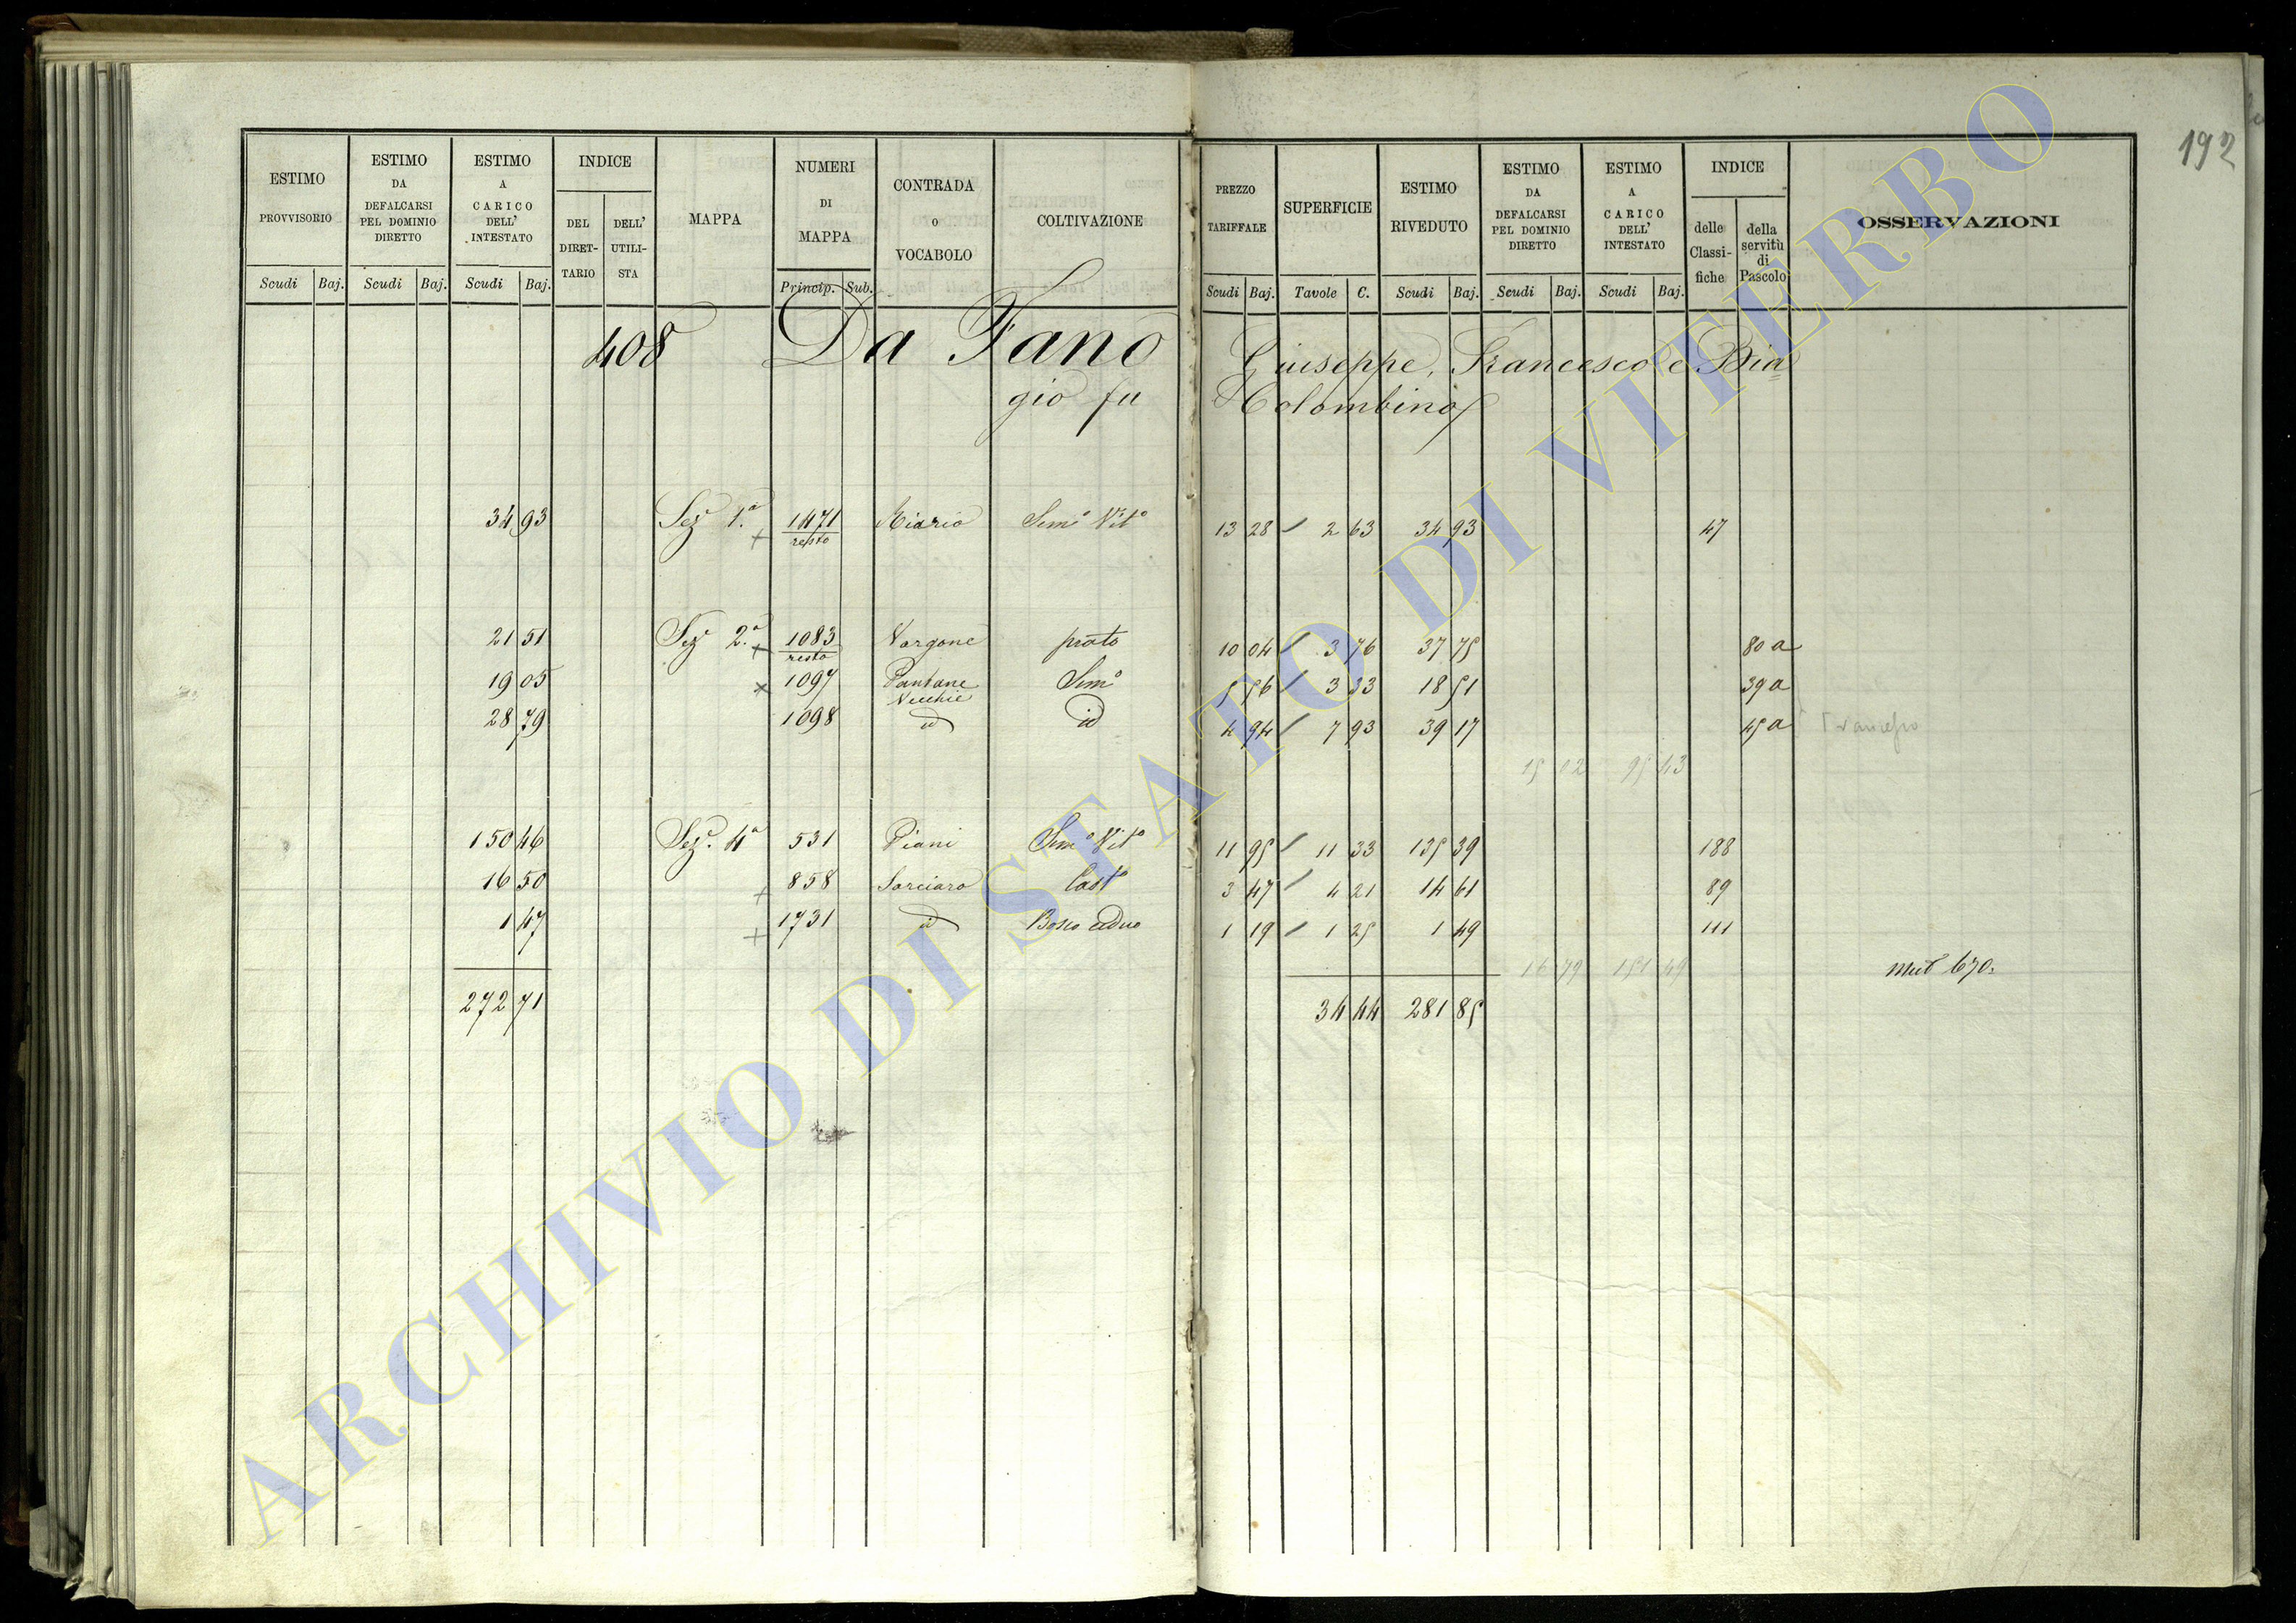 192
ESTIMO PROVVISORIO Scudi Baj.
ESTIMO DA DEFALCARSI PEL DOMINIO DIRETTO Scudi Baj.
ESTIMO A CARICO DELL' INTESTATO Scudi Baj.
INDICE DEL DIRET-TARIO DELL' UTILI-STA
MAPPA
NUMERI DI MAPPA Princip. Sub.
CONTRADA o VOCABOLO
COLTIVAZIONE
PREZZO TARIFFALE Scudi Baj.
SUPERFICIE Tavole C.
ESTIMO RIVEDUTO Scudi Baj.
ESTIMO DA DEFALCARSI PEL DOMINIO DIRETTO Scudi Baj.
ESTIMO A CARICO DELL' INTESTATO Scudi Baj.
INDICE delle Classi-fiche della servitù di Pascolo
OSSERVAZIONI
408 Da Fano Giuseppe, Francesco e Bia=
gio fu Colombino
34 93 Sez.e 1.a + 1471 resto Miario Sem.o Vit.o 13 28 / 2 63 34 93 47
21 51 Sez.e 2.a + 1083 resto Vorgone prato 10 04 / 3 76 37 75 80 a
19 05 x 1097 Pantane Vecchie Sem.o 5 56 / 3 33 18 51 39 a
28 79 1098 id id 4 94 / 7 93 39 17 45 a
15 02 95 43
150 46 Sez.e 4.a 531 Piani Sem.o Vit.o 11 95 / 11 33 135 39 188
16 50 + 858 Sorciaro Cast.o 3 47 / 4 21 14 61 89
1 47 + 1731 id Bosco ceduo 1 19 / 1 25 1 49 111
16 79 151 49 Mut 670.
272 71 34 44 281 85
ARCHIVIO DI STATO DI VITERBO